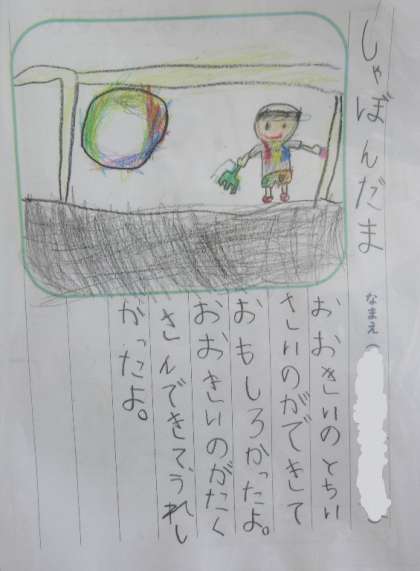 しゃぼんだま
なまえ(
おおきいのとちい
さいのができて
おもしろかったよ。
おおきいのがたく
さんできて、うれし
かったよ。